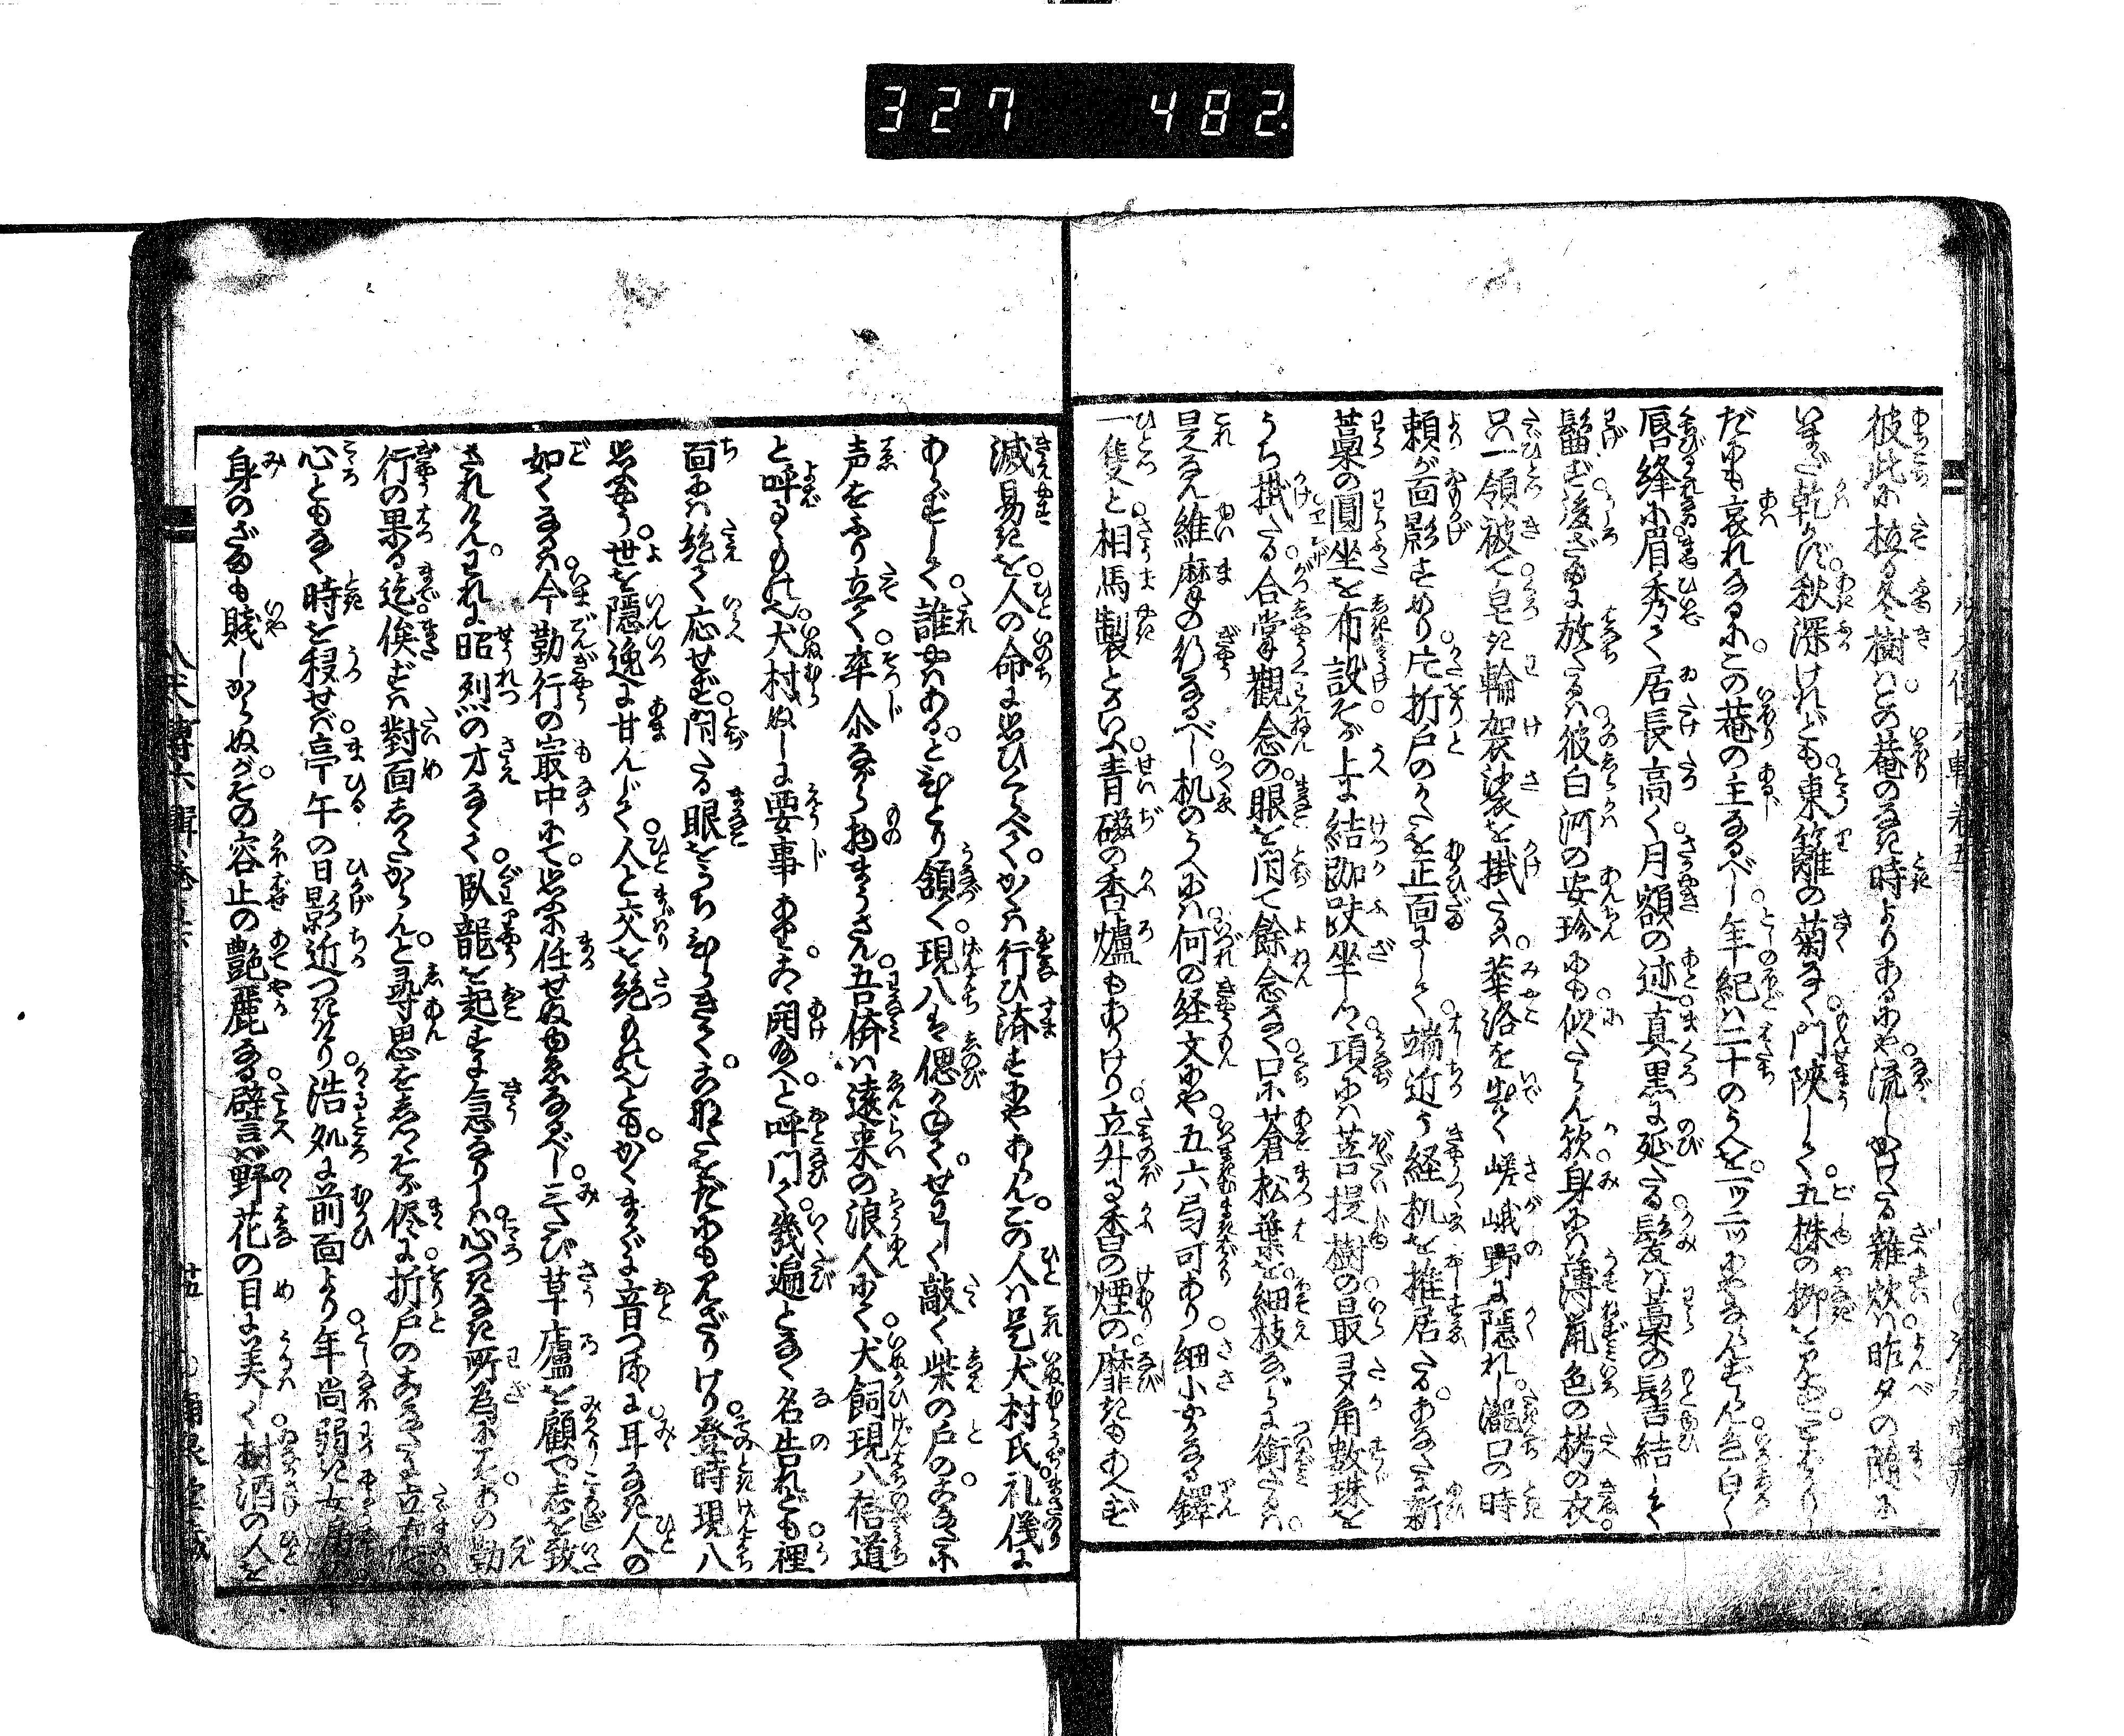 327 482
彼此に植る冬樹はこの菴のなき時よりあるにや。流しかけたる雜炊は昨夕の隨に
いまだ乾かず。秋深けれども東籬の菊なく。門陝しく五株の柳を
だにも哀れなるに。この菴の主なるべし年紀は二十のうへを一ッ二ッにやなんずらん。色白く
唇絳に眉秀て居長高く月額の迹真黒に延たる髮は藁の髻結して
髷ず後ざまに放たるは彼白河の安珍にも似たらん欤。身には薄鼠色の栲の衣
只一領被て皂き輪袈裟を掛たるは。華洛を出て嵯峨野に隱れし瀧口の時
頼が面影ますめり。片折戸のかたを正面にして。端近う経机を推居たる。あなたに新
藁の圓坐を布設その上に結跏趺坐しつ。項には菩提樹の最多角數珠を
うち掛たる。合掌觀念の眼を閉て餘念なく口に蒼松葉を細枝ながら銜たるは。
是なん維摩の行なるべし。机のうへには何の経文にや五六卷可あり。細小かなる鐸
一隻と相馬製といふ青磁の香爐もありけり。立升る香の煙の靡きもあへず
滅易きを人の命に思ひくらべてかくは行ひ済すにやあらん。この人は是犬村氏礼儀に
あらずして。誰かはあると。ひとり頷く現八は偲びかねて。せわしく敲く柴の戸のこなたに
声をふり立て。卒尓ながら物まうさん。吾儕は遠来の浪人にて犬飼現八信道
と呼るゝものへ。犬村ぬしに要事あり。こゝ開給へと呼門て幾遍となく名告れども。裡
面には絶て応せず。閉たる眼をうちひらきて。こなたをだにも見ざりけり。登時現八
思ふやう。世を隱逸に甘んじて。人と交を絶ものといふとも。かくまでに音つるゝに。耳なき人の
如くなるは。今勤行の㝡中にて思ふに任せぬゆゑなるべし。三たび草廬を顧や志を致
されけん。われに昭烈の才なくて臥龍を起すに急なりしは。心つたなき所為にこそ。あの勤
行の果る迄俟ずは對面しがたからんと尋思をしつゝその儘に折戸のこなたに立在て
心ともなく時を移せば亭午の日影近つきけり。浩処に前面より年尚弱き女房の
身のざまも賤しからぬが。その容止の艶麗なる。譬ば野花の目に美しく村酒の人を
八犬傳六輯卷五
廿五